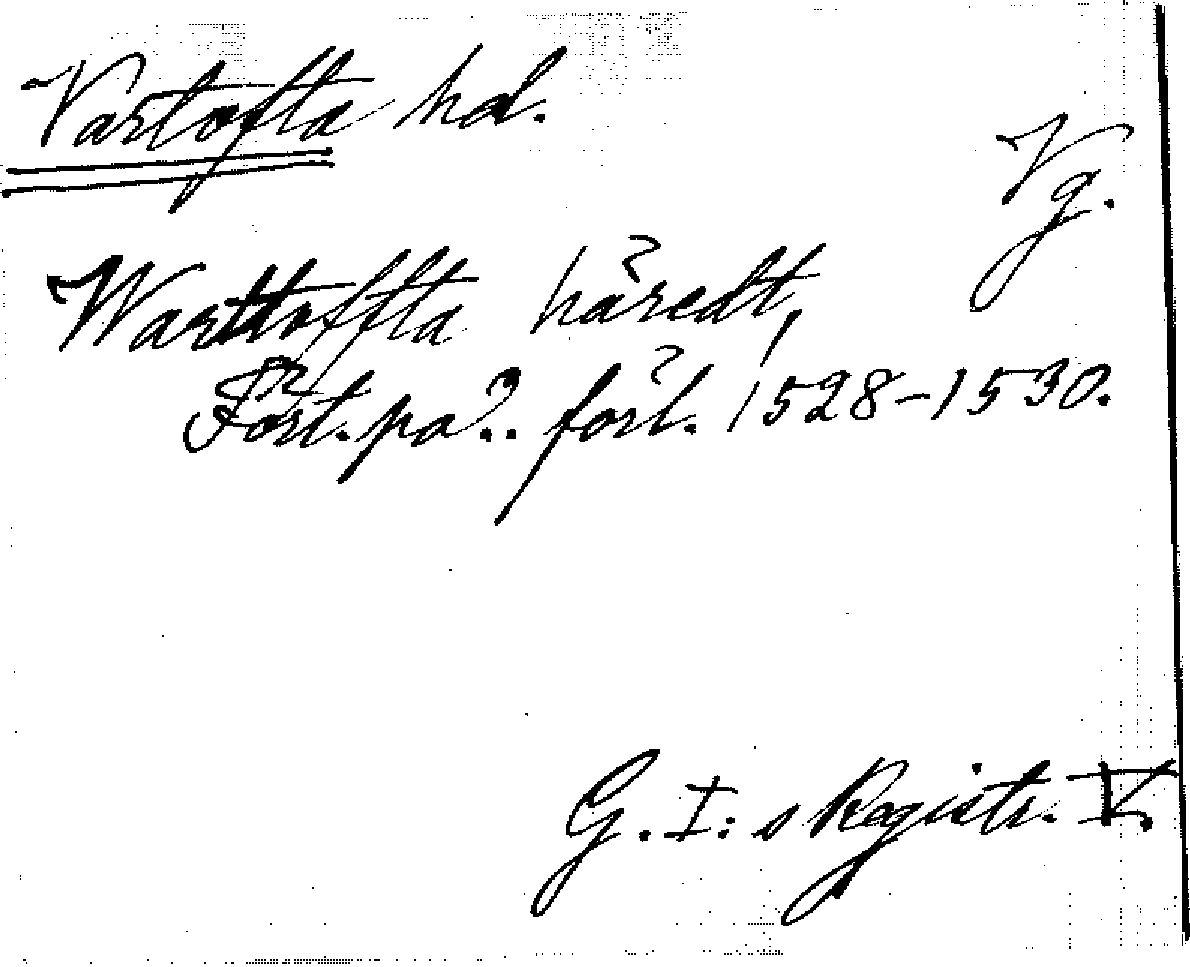 Vartofta hd.
Vg.
Warttoffta häredt,
Fört. på .. förl. 1528-1530.
G. I:s Registr. V.